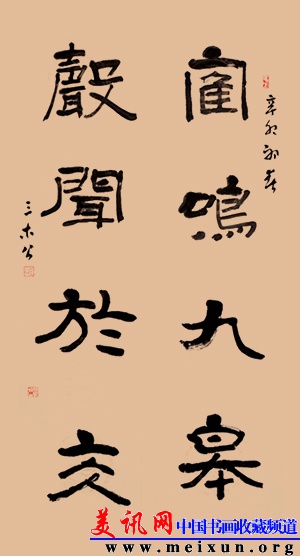 辛卯初春
隺鳴九皋
聲聞於天
三木公
美讯网 中国书画收藏频道
www.meixun.org